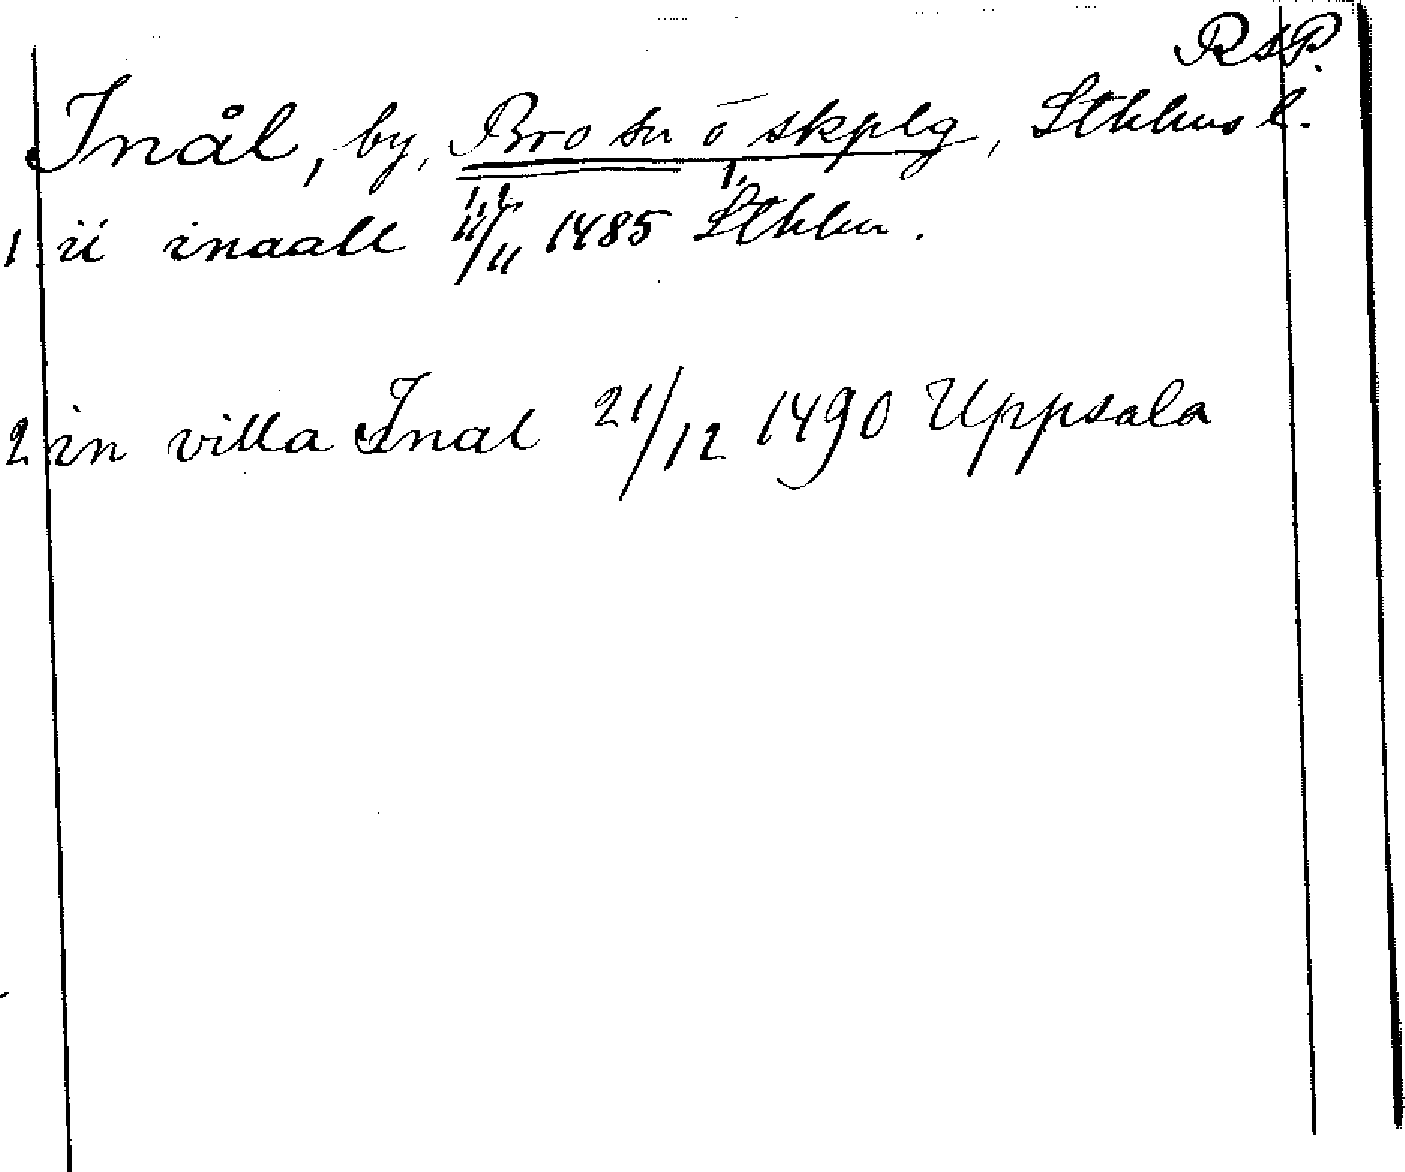 RAP.
Inål, by, Bro sn o skplg, Sthlms l.
1 ii inaall 11/11 1485 Sthlm.
2 in villa Inal 21/12 1490 Uppsala